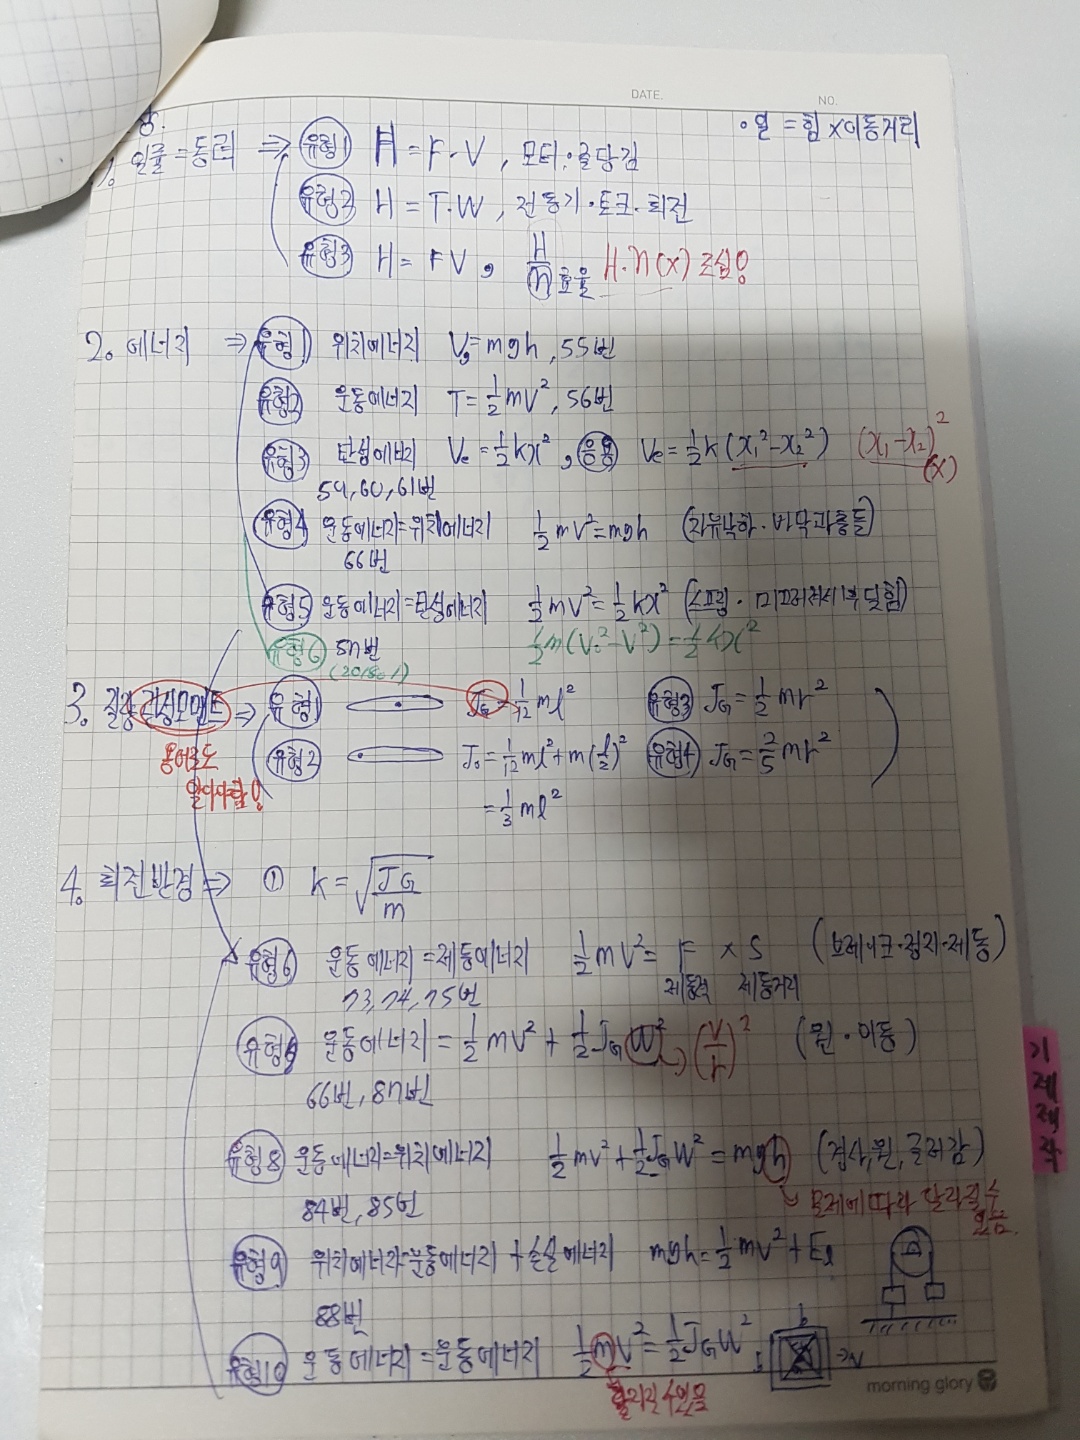 DATE.
NO.
장.
• 일 = 힘 × 이동거리
1. 일률 = 동력 ⇒ 유형1 H = F·V, 모터·줄당김
유형2 H = T·W, 전동기·토크·회전
유형3 H = FV, H/η 효율 H·η(x) 조심!
2. 에너지 ⇒ 유형1 위치에너지 Vg = mgh, 55번
유형2 운동에너지 T = 1/2 mV², 56번
유형3 탄성에너지 Ve = 1/2 kx², 응용 Ve = 1/2 k(x₁²-x₂²) (x₁-x₂)² (x)
59, 60, 61번
유형4 운동에너지=위치에너지 1/2 mV² = mgh (자유낙하·바닥과충돌)
66번
유형5 운동에너지=탄성에너지 1/2 mV² = 1/2 kx² (스프링· 부딪힘)
유형6 57번 1/2 m(V₀²-V²) = 1/2 kx²
(2018. 1)
3. 질량관성모멘트 ⇒ 유형1 JG = 1/12 ml² 유형3 JG = 1/2 mr²
용어로도
알아야함!
유형2 J₀ = 1/12 ml² + m(l/2)² 유형4 JG = 2/5 mr²
= 1/3 ml²
4. 회전반경 ⇒ ① K = √(JG/m)
유형6 운동에너지=제동에너지 1/2 mV² = F × S (브레이크·정지·제동)
제동력 제동거리
73, 74, 75번
유형 운동에너지 = 1/2 mV² + 1/2 JG W² → (V/r)² (원·이동)
66번, 87번
유형8 운동에너지=위치에너지 1/2 mv² + 1/2 JG W² = mgh (경사, 원, 굴러감)
문제에따라 달라질수
있음.
84번, 85번
유형9 위치에너지=운동에너지+손실에너지 mgh = 1/2 mV² + Eℓ
88번
유형10 운동에너지=운동에너지 1/2 mV² = 1/2 JG W² b →V
달라질수있음
기
제
제
작
morning glory